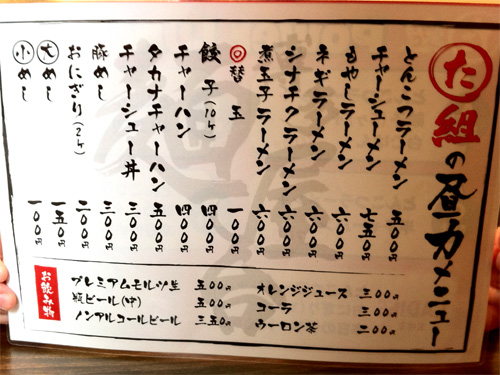 た組の昼力メニュー
とんこつラーメン 五〇〇円
チャーシューメン 七五〇円
もやしラーメン 六〇〇円
ネギラーメン 六〇〇円
シナチクラーメン 六〇〇円
煮玉子ラーメン 六〇〇円
◎替玉 一〇〇円
餃子(10ケ) 四〇〇円
チャーハン 四〇〇円
タカナチャーハン 五〇〇円
チャーシュー丼 三〇〇円
豚めし 三〇〇円
おにぎり(2ケ) 二〇〇円
大めし 一五〇円
小めし 一〇〇円
お飲み物
プレミアムモルツ生 五〇〇円
瓶ビール(中) 五〇〇円
ノンアルコールビール 三五〇円
オレンジジュース 三〇〇円
コーラ 三〇〇円
ウーロン茶 二〇〇円